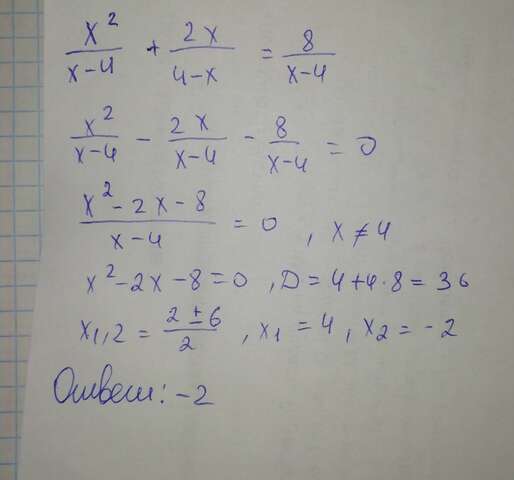 x²/(x-4) + 2x/(4-x) = 8/(x-4)
x²/(x-4) - 2x/(x-4) - 8/(x-4) = 0
(x²-2x-8)/(x-4) = 0, x≠4
x²-2x-8=0, D=4+4·8=36
x1,2 = (2±6)/2, x1=4, x2=-2
Ответ: -2